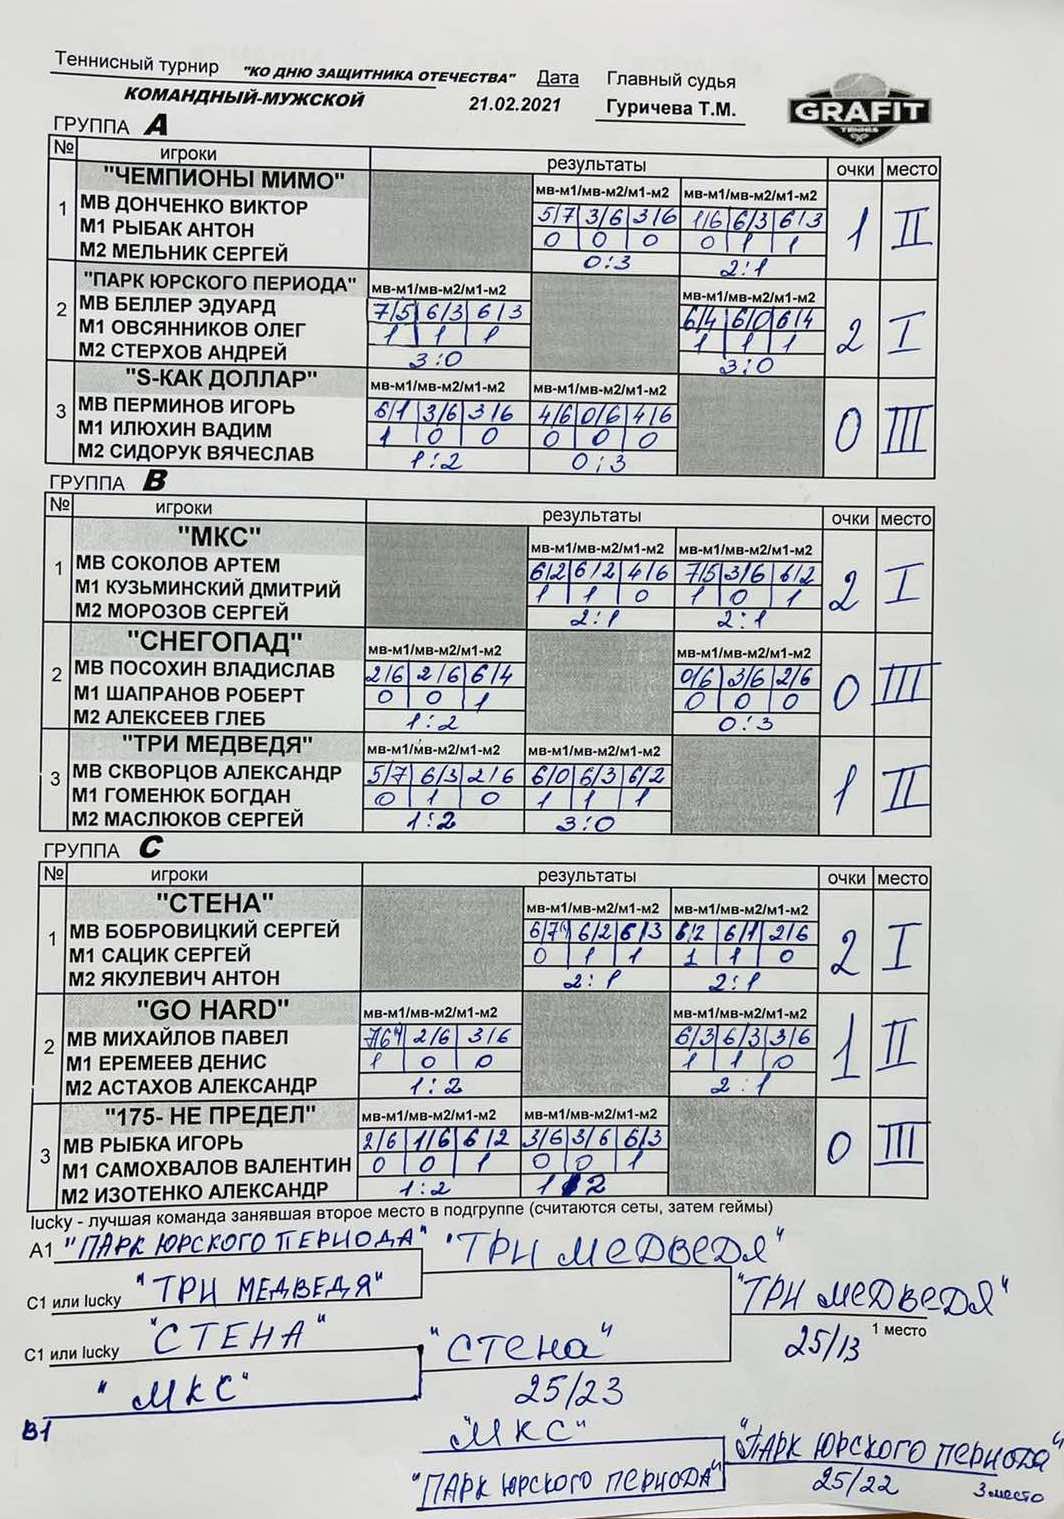 Теннисный турнир "КО ДНЮ ЗАЩИТНИКА ОТЕЧЕСТВА" Дата Главный судья
КОМАНДНЫЙ-МУЖСКОЙ 21.02.2021 Гуричева Т.М.
GRAFIT
ГРУППА A
№ игроки результаты очки место
1 "ЧЕМПИОНЫ МИМО" мв-м1/мв-м2/м1-м2 мв-м1/мв-м2/м1-м2 1 II
МВ ДОНЧЕНКО ВИКТОР 5/7 3/6 3/6 1/6 6/3 6/3
М1 РЫБАК АНТОН 0 0 0 0 1 1
М2 МЕЛЬНИК СЕРГЕЙ 0:3 2:1
2 "ПАРК ЮРСКОГО ПЕРИОДА" мв-м1/мв-м2/м1-м2 мв-м1/мв-м2/м1-м2 2 I
МВ БЕЛЛЕР ЭДУАРД 7/5 6/3 6/3 6/4 6/0 6/4
М1 ОВСЯННИКОВ ОЛЕГ 1 1 1 1 1 1
М2 СТЕРХОВ АНДРЕЙ 3:0 3:0
3 "S-КАК ДОЛЛАР" мв-м1/мв-м2/м1-м2 мв-м1/мв-м2/м1-м2 0 III
МВ ПЕРМИНОВ ИГОРЬ 6/1 3/6 3/6 4/6 0/6 4/6
М1 ИЛЮХИН ВАДИМ 1 0 0 0 0 0
М2 СИДОРУК ВЯЧЕСЛАВ 1:2 0:3
ГРУППА B
№ игроки результаты очки место
1 "МКС" мв-м1/мв-м2/м1-м2 мв-м1/мв-м2/м1-м2 2 I
МВ СОКОЛОВ АРТЕМ 6/2 6/2 4/6 7/5 3/6 6/2
М1 КУЗЬМИНСКИЙ ДМИТРИЙ 1 1 0 1 0 1
М2 МОРОЗОВ СЕРГЕЙ 2:1 2:1
2 "СНЕГОПАД" мв-м1/мв-м2/м1-м2 мв-м1/мв-м2/м1-м2 0 III
МВ ПОСОХИН ВЛАДИСЛАВ 2/6 2/6 6/4 0/6 3/6 2/6
М1 ШАПРАНОВ РОБЕРТ 0 0 1 0 0 0
М2 АЛЕКСЕЕВ ГЛЕБ 1:2 0:3
3 "ТРИ МЕДВЕДЯ" мв-м1/мв-м2/м1-м2 мв-м1/мв-м2/м1-м2 1 II
МВ СКВОРЦОВ АЛЕКСАНДР 5/7 6/3 2/6 6/0 6/3 6/2
М1 ГОМЕНЮК БОГДАН 0 1 0 1 1 1
М2 МАСЛЮКОВ СЕРГЕЙ 1:2 3:0
ГРУППА C
№ игроки результаты очки место
1 "СТЕНА" мв-м1/мв-м2/м1-м2 мв-м1/мв-м2/м1-м2 2 I
МВ БОБРОВИЦКИЙ СЕРГЕЙ 6/7 6/2 6/3 6/2 6/1 2/6
М1 САЦИК СЕРГЕЙ 0 1 1 1 1 0
М2 ЯКУЛЕВИЧ АНТОН 2:1 2:1
2 "GO HARD" мв-м1/мв-м2/м1-м2 мв-м1/мв-м2/м1-м2 1 II
МВ МИХАЙЛОВ ПАВЕЛ 7/6 2/6 3/6 6/3 6/3 3/6
М1 ЕРЕМЕЕВ ДЕНИС 1 0 0 1 1 0
М2 АСТАХОВ АЛЕКСАНДР 1:2 2:1
3 "175- НЕ ПРЕДЕЛ" мв-м1/мв-м2/м1-м2 мв-м1/мв-м2/м1-м2 0 III
МВ РЫБКА ИГОРЬ 2/6 1/6 6/2 3/6 3/6 6/3
М1 САМОХВАЛОВ ВАЛЕНТИН 0 0 1 0 0 1
М2 ИЗОТЕНКО АЛЕКСАНДР 1:2 1:2
lucky - лучшая команда занявшая второе место в подгруппе (считаются сеты, затем геймы)
A1 "ПАРК ЮРСКОГО ПЕРИОДА" "ТРИ МЕДВЕДЯ"
C1 или lucky "ТРИ МЕДВЕДЯ" "ТРИ МЕДВЕДЯ"
1 место
25/13
C1 или lucky "СТЕНА" "СТЕНА"
"МКС" 25/23
B1
"МКС"
"ПАРК ЮРСКОГО ПЕРИОДА"
"ПАРК ЮРСКОГО ПЕРИОДА"
25/22 3 место